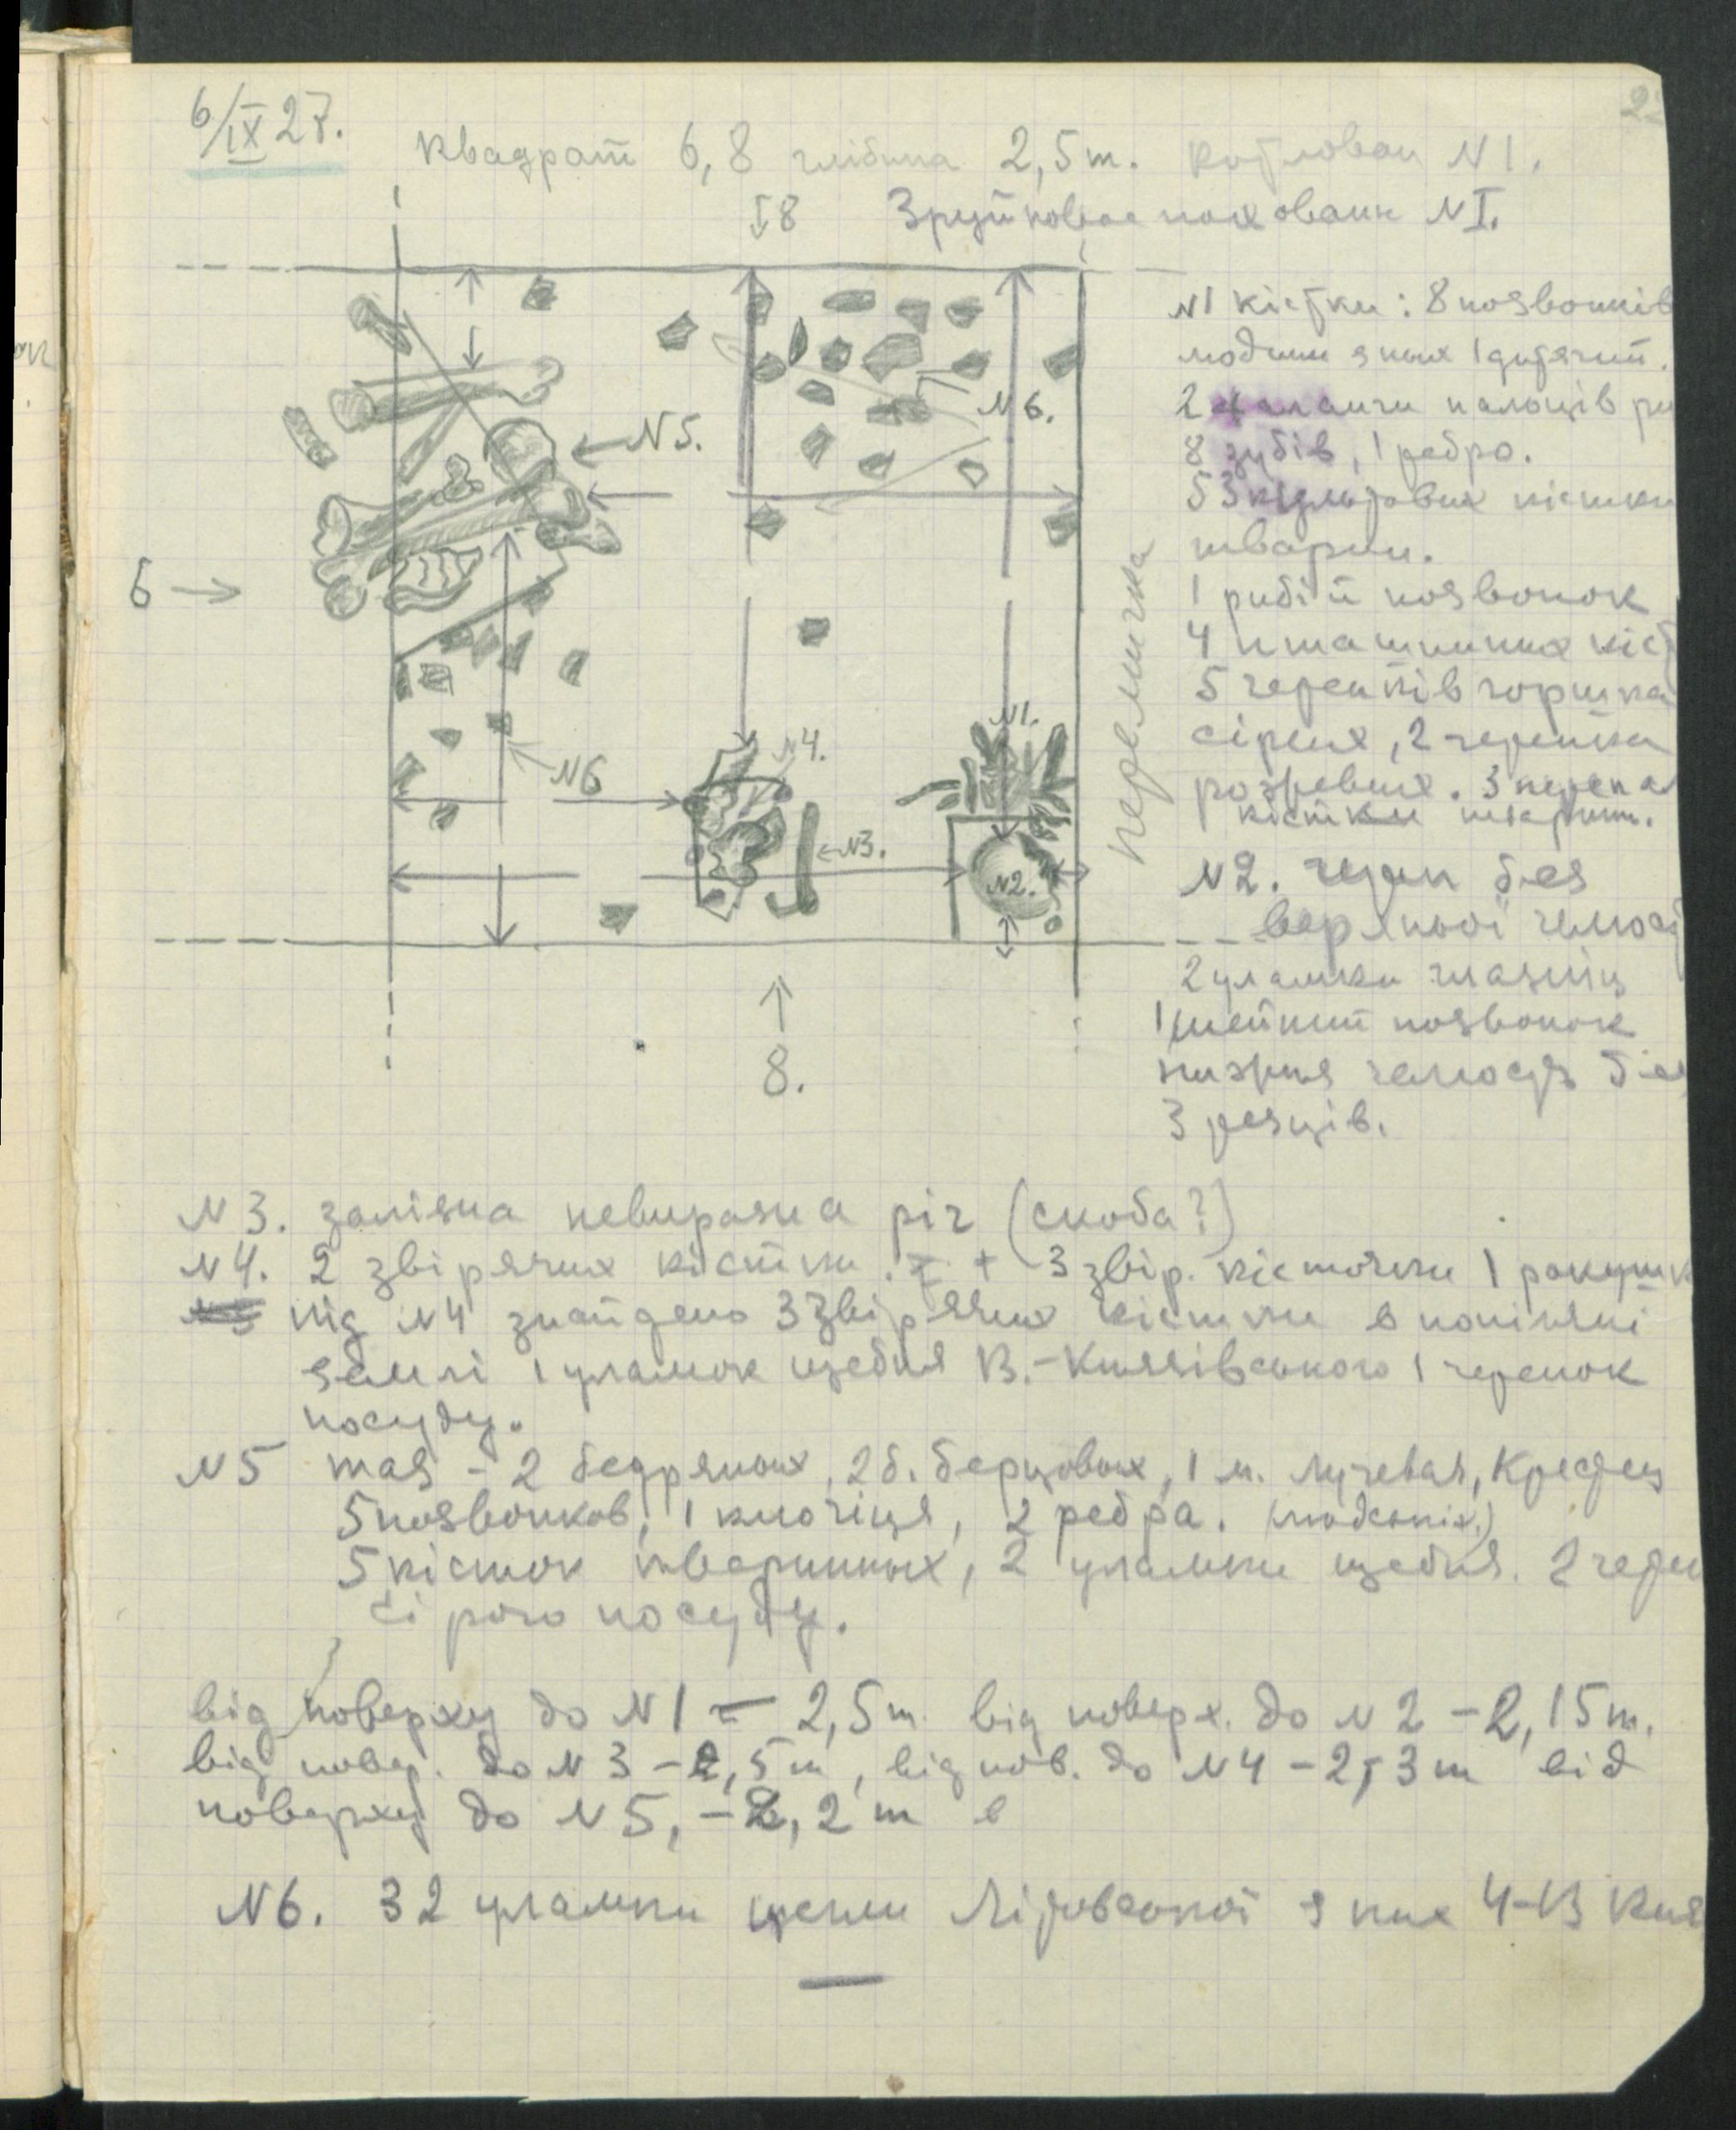 6/IX 27.
22
Квадрат 6,8 глибина 2,5 m. Котлован N 1.
↕8 Зруйноване поховання N I.
N1 кістки: 8 позвонків
людини з них 1 дитячий.
2 фаланги пальців
8 зубів, 1 ребро.
53 кістки
тварин.
1 рибій позвонок
4 пташиних кіст
5 черепків горшка
сірих, 2 черепка
рожевих. 3
кістки тварин.
N2. череп без
верхньої челюст
2 уламки
1 шейний позвонок
нижня челюсть без
3 резців.
N5.
N6.
6 →
перемичка
N1.
N4.
N6
N3.
N2.
8.
N 3. залізна невиразна річ (скоба?)
N 4. 2 звірячих кістки. + 3 звір. кісточки 1 ракушк
під N4 знайдено 3 звірячих кістки в
землі 1 уламок щебня В.-Князівського 1 черепок
посуду.
N5 таз - 2 бедряных, 2 б. берцовых, 1 л. лучевая, Крестец
5 позвонков, 1 ключиця, 2 ребра. (людських)
5 кісток тваринных, 2 уламки щебня. 2 череп
сірого посуду.
від поверху до N 1 = 2,5 m від поверх. до N 2 - 2,15 m.
від повер. до N 3 - 2,5 m, від пов. до N4 - 2,3 m від
поверху до N 5, - 2,2 m в
N6. 32 уламки цегли Літовської з них 4-В Княз